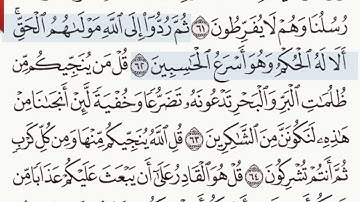 رُسُلُنَا وَهُمْ لَا يُفَرِّطُونَ ٦١ ثُمَّ رُدُّوٓا۟ إِلَى ٱللَّهِ مَوْلَىٰهُمُ ٱلْحَقِّ ۚ
أَلَا لَهُ ٱلْحُكْمُ وَهُوَ أَسْرَعُ ٱلْحَـٰسِبِينَ ٦٢ قُلْ مَن يُنَجِّيكُم مِّن
ظُلُمَـٰتِ ٱلْبَرِّ وَٱلْبَحْرِ تَدْعُونَهُۥ تَضَرُّعًا وَخُفْيَةً لَّئِنْ أَنجَىٰنَا مِنْ
هَـٰذِهِۦ لَنَكُونَنَّ مِنَ ٱلشَّـٰكِرِينَ ٦٣ قُلِ ٱللَّهُ يُنَجِّيكُم مِّنْهَا وَمِن كُلِّ كَرْبٍ
ثُمَّ أَنتُمْ تُشْرِكُونَ ٦٤ قُلْ هُوَ ٱلْقَادِرُ عَلَىٰٓ أَن يَبْعَثَ عَلَيْكُمْ عَذَابًا مِّن